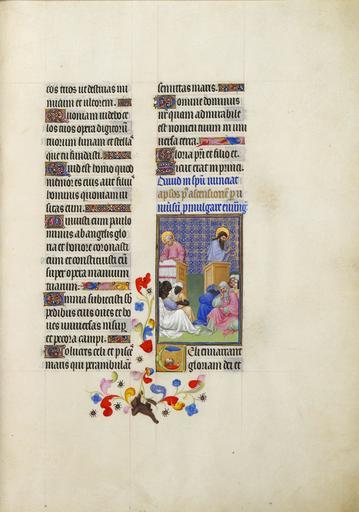 tos tuos ut destruas ini
micum et ultorem.
Quoniam videbo ce
los tuos opera digitorū
tuorum lunam et stellas
que tu fundasti.
Quid est homo quod
memor es eius aut filius
hominis quoniam vi
sitas eum.
Minuisti eum paulo
minus ab angelis glo
ria et honore coronasti
eum et constituisti eū
super opera manuum
tuarum.
Omnia subiecisti sub
pedibus eius oves et bo
ves universas insup
et pecora campi.
Volucres celi et pisces
maris qui perambulāt
semittas maris.
Domine dominus
nr̄ quam admirabile
est nomen tuum in uni
versa terra.
Gloria pr̄i et filio et.
Sicut erat in princi.
Celi enarrant
gloriam dei et